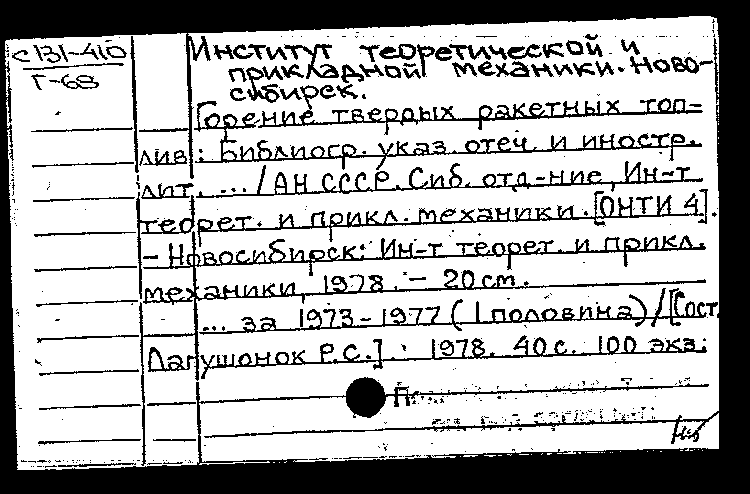 С131-410
Г-68
Институт теоретической и
прикладной механики. Ново-
сибирск.
Горение твердых ракетных топ-
лив: Библиогр. указ. отеч. и иностр.
лит. ... / АН СССР. Сиб. отд-ние, Ин-т
теорет. и прикл. механики. [ОНТИ 4].
- Новосибирск: Ин-т теорет. и прикл.
механики, 1978. - 20 см.
... за 1973-1977 (1 половина) / [Сост.
Лапушонок Р.С.]. 1978. 40 с. 100 экз.